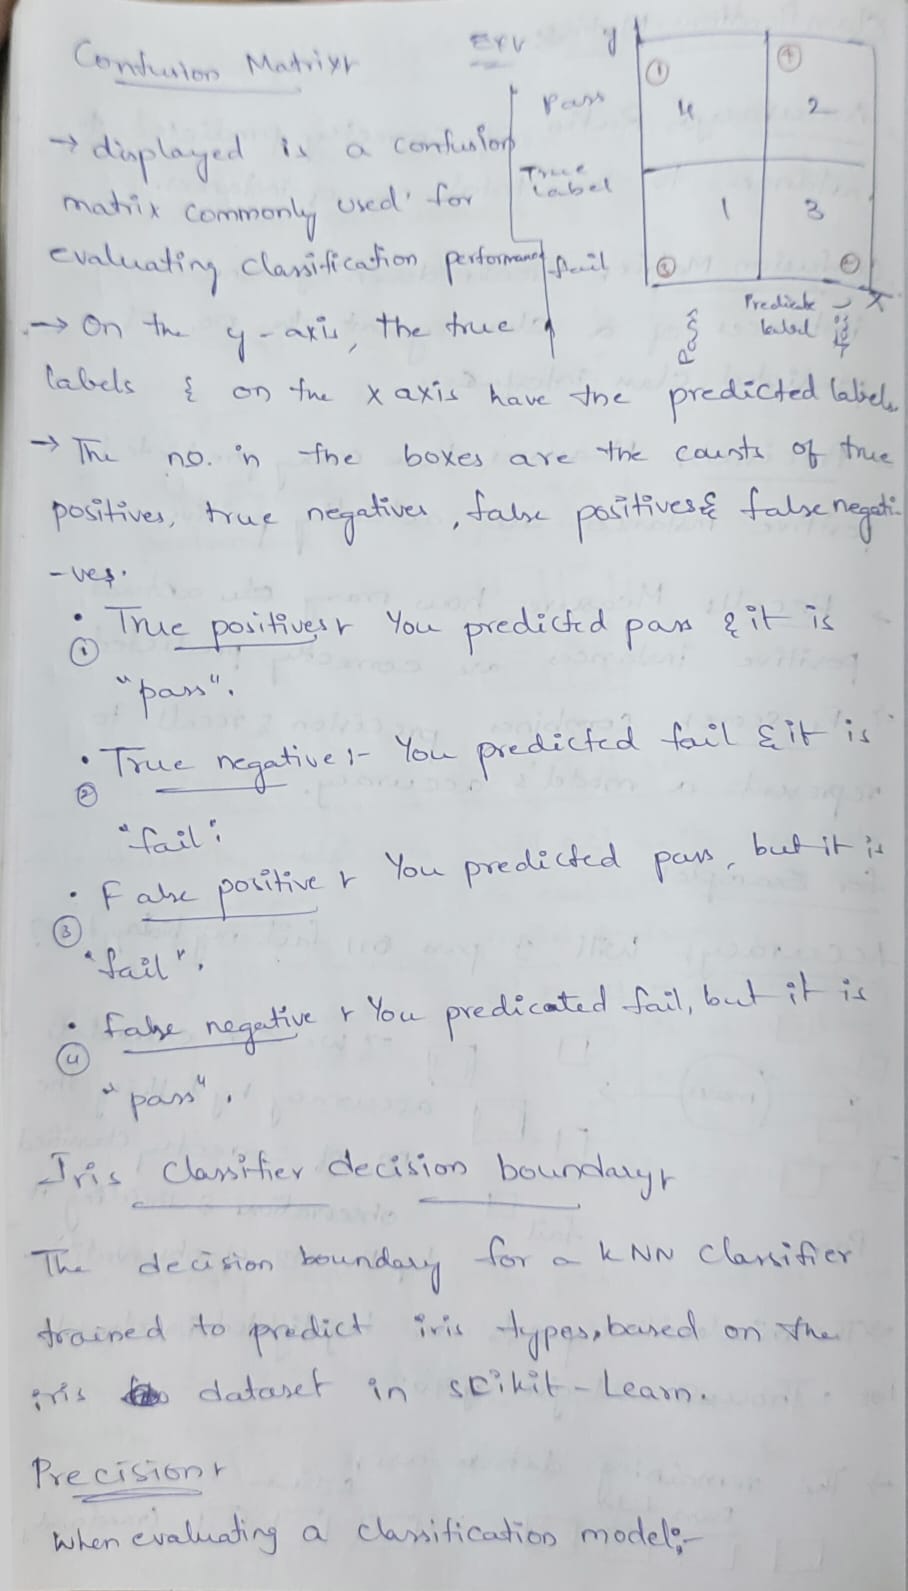 Confusion Matrix:-
Ex:-
y
① ④
Pass 4 2
True
label
1 3
fail ② ③
Predicate x
label
Pass fail
→ displayed is a confusion
matrix commonly used for
evaluating classification performance
→ On the y-axis, the true
labels & on the x axis have the predicted labels.
→ The no. in the boxes are the counts of true
positives, true negatives, false positives & false negati-
-ves.
• True positives:- You predicted pass & it is
①
"pass".
• True negative:- You predicted fail & it is
②
"fail".
• False positive:- You predicted pass, but it is
③
"fail".
• false negative:- You predicated fail, but it is
④
"pass".
Iris Classifier decision boundary:-
The decision boundary for a KNN Classifier
trained to predict iris types, based on the
iris dataset in scikit-Learn.
Precision:-
When evaluating a classification model:-